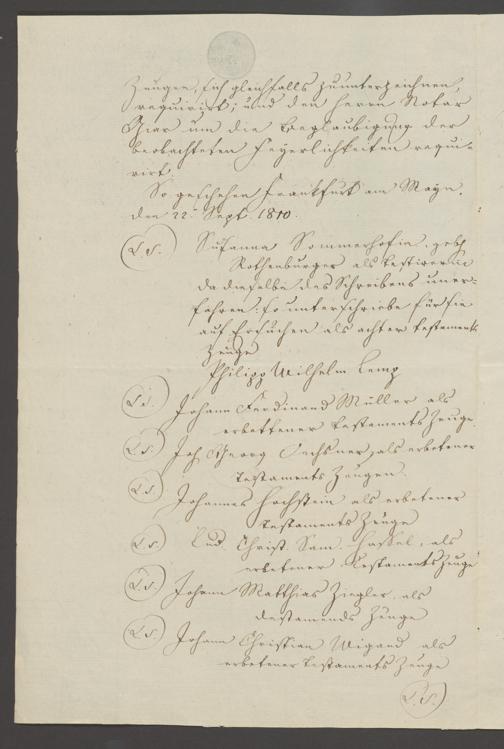 Zeugen, sich gleichfalls zu unterzeichnen,
requirirt; und den Herrn Notar
um die Beglaubigung der
beobachteten Feyerlichkeiten requi-
rirt.
So geschehen Frankfurt am Mayn.
den 22ⁿ Sept 1810.
(L.S.) Susanna Sommerhofin, geb.
Rothenburger als Testirerin
da dieselbe des Schreibens uner-
fahren, so unterschriebe für sie
auf Ersuchen als achter Testaments
Zeuge
Philipp Wilhelm Lemp
(L.S.) Johann Ferdinand Müller als
erbettener Testaments Zeuge.
(L.S.) Joh. Georg Ochsner, als erbetener
Testaments Zeugen.
(L.S.) Johannes Hochstein als erbetener
Testaments Zeuge
(L.S.) Lud. Christ. Sam. Hassel, als
erbetener Testaments Zeuge
(L.S.) Johann Matthias Ziegler als
Testaments Zeuge
(L.S.) Johann Christian Wigand als
erbetener Testaments Zeuge
(L.S.)